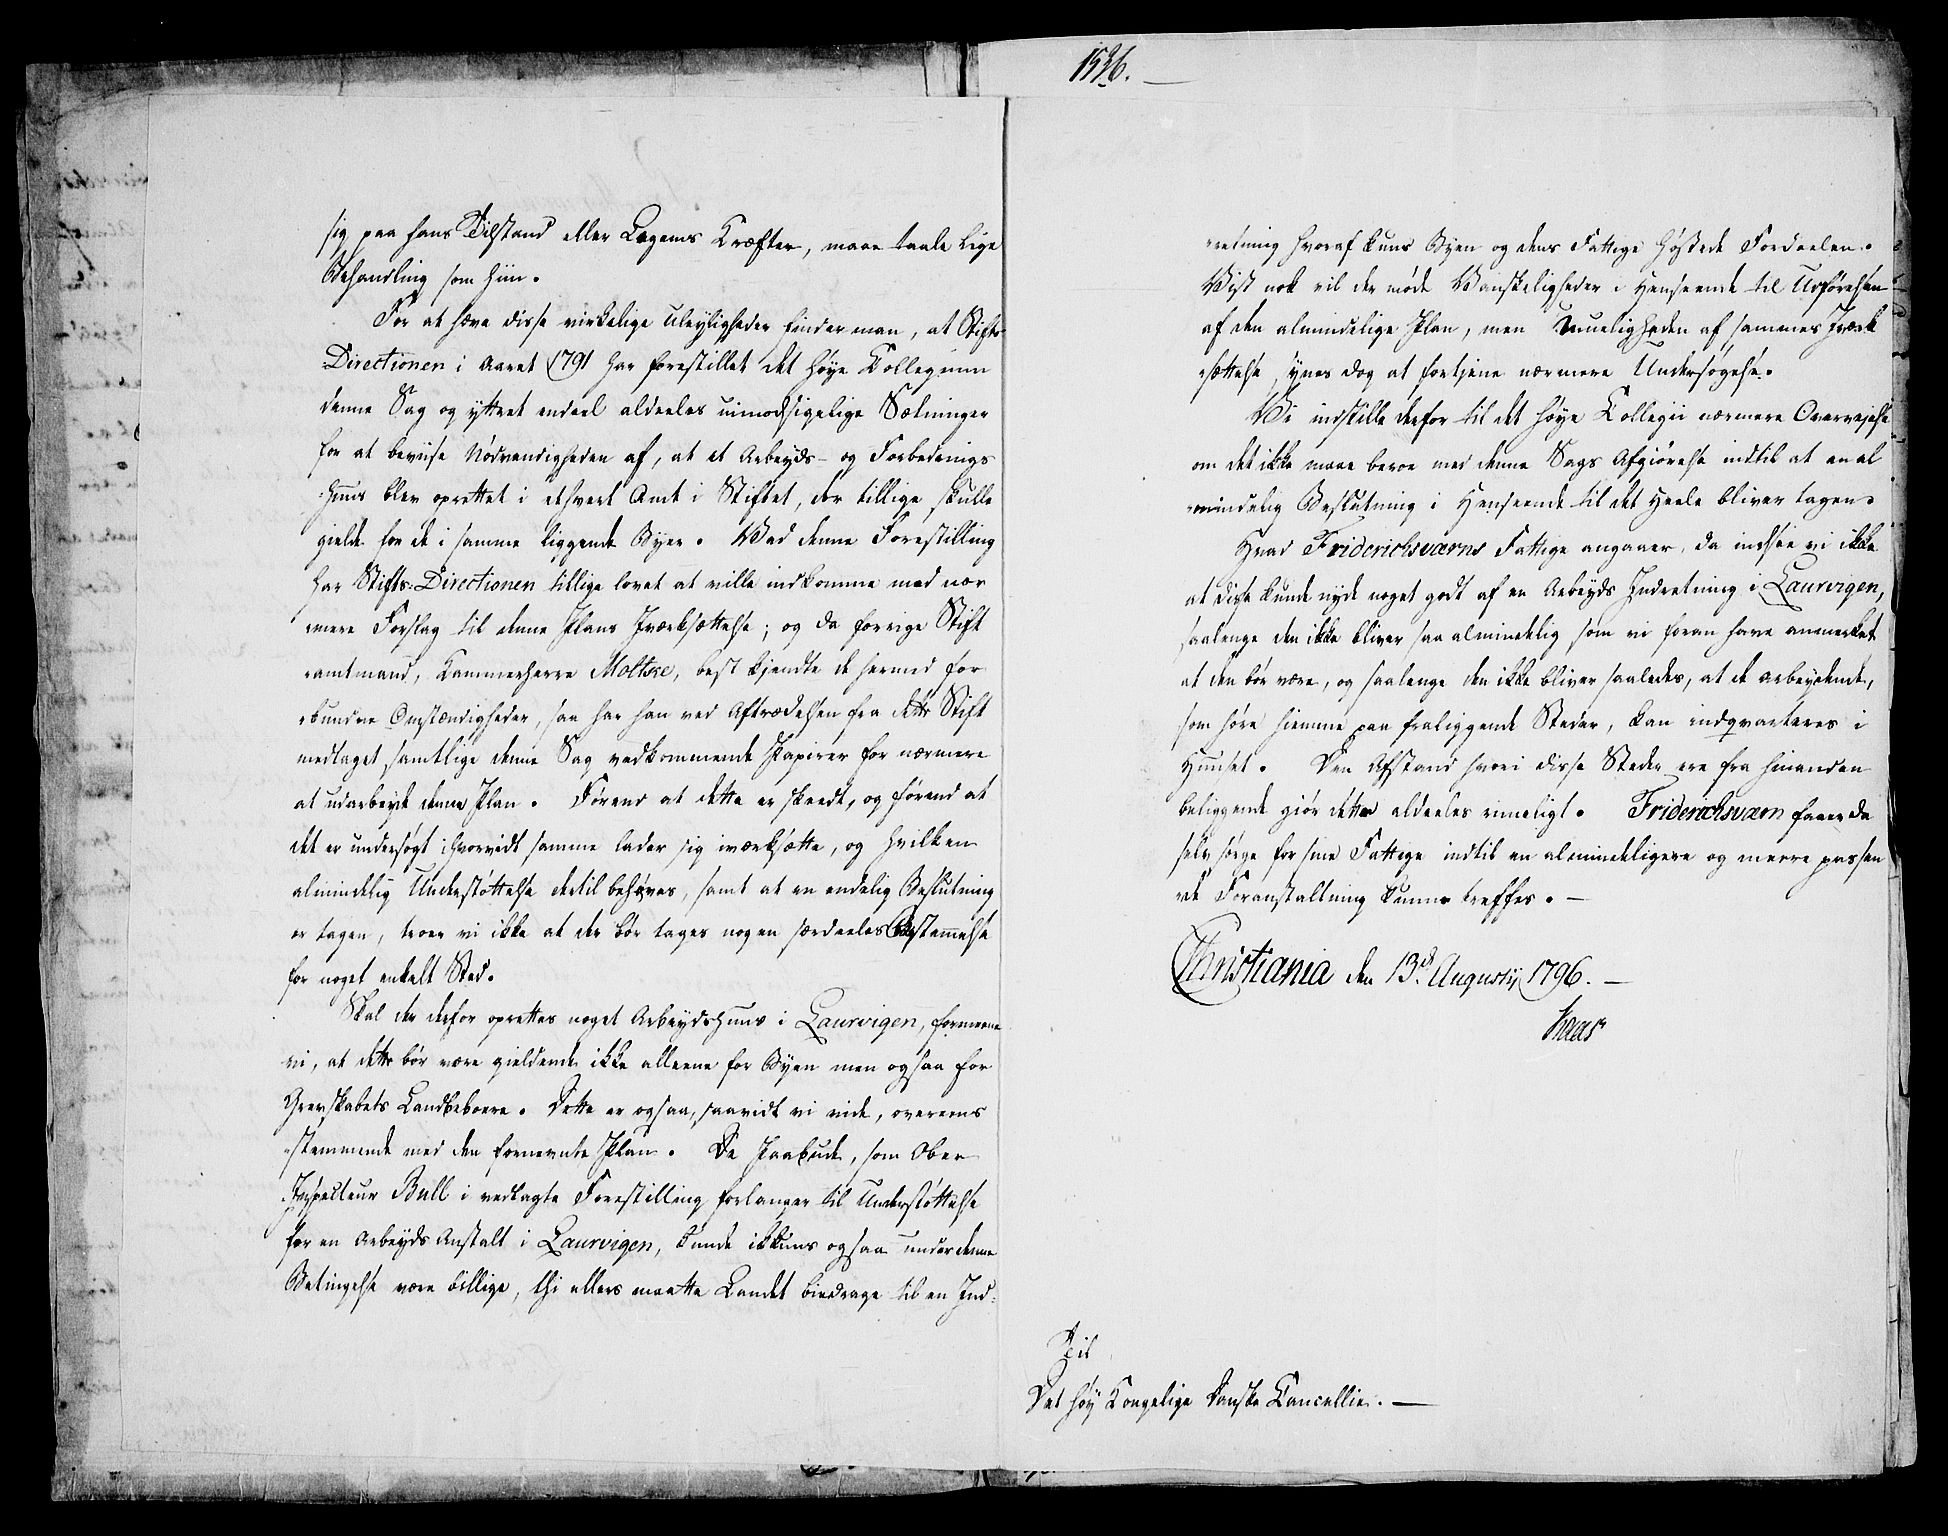 sig paa hans Tilstand eller Legems Kræfter, maae taale lige
Behandling som hiin.
For at hæve disse virkelige Uleyligheder finder man, at Stifts
Directionen i Aaret 1791 har forestillet det høye Collegium
denne Sag og yttret endeel aldeeles uimodsigelige Sætninger
for at beviise Nødvendigheden af, at et Arbeyds- og Forbedrings
huus blev oprettet i ethvert Amt i Stiftet, der tillige skulle
gielde for de i samme liggende Byer. Med denne Forestilling
har Stifts-Directionen tillige lovet at ville indkomme med nær
mere Forslag til denne Plans Iværksættelse; og da forrige Stift
amtmand, Kammerherre Moltke, best kjendte de hermed for
bundne Omstændigheder, saa har han ved Aftrædelsen fra dette Stift
medtaget samtlige denne Sag vedkommende Papirer for nærmere
at udarbeyde denne Plan. Førend at dette er skeedt, og førend at
det er undersøgt, hvorvidt samme lader sig iværksætte, og hvilken
almindelig Understøttelse dertil behøves, samt at en endelig Beslutning
er tagen, troer vi ikke at der bør tages nogen særdeeles Bestemmelse
for noget enkelt Sted.
Skal der derfor oprettes noget Arbeydshuus i Laurvigen, formeene
vi, at dette bør være gieldende ikke alleene for Byen men ogsaa for
Grevskabets Landbeboere. Dette er ogsaa, saavidt vi vide, overeens
stemmende med den fornevnte Plan. De Paabude, som Ober
Inspecteur Bull i vedlagte Forestilling forlanger til Understøttelse
for en Arbeyds Anstalt i Laurvigen, kunde ikkuns ogsaa under denne
Betingelse være billige, thi ellers maatte Landet biedrage til en Ind-
1536.
retning hvoraf kuns Byen og dens Fattige høstede Fordeelen.
Vist nok vil der møde Vanskeligheder i Henseende til Udførelsen
af den almindelige Plan, men Mueligheden af sammes Iværk
sættelse, synes dog at fortjene nærmere Undersøgelse.
Vi indstille derfor til det høye Collegii nærmere Overvejelse
om det ikke maae beroe med denne Sags Afgiørelse indtil at en al
mindelig Beslutning i Henseende til det Heele bliver tagen.
Hvad Friderichsværns Fattige angaaer, da indsee vi ikke
at disse kunde nyde noget godt af en Arbeyds Indretning i Laurvigen,
saalenge den ikke bliver saa almindelig som vi foran have anmerket
at den bør være, og saalenge den ikke bliver saaledes, at de arbeydende,
som høre hiemme paa fraliggende Steder, kan indqvarteres i
Huuset. Den Afstand hvori disse Steder ere fra hinanden
beliggende giør dette aldeeles rimeligt. Friderichsværn faaer da
selv sørge for sine Fattige indtil en almindeligere og meere passen
de Foranstaltning kunne treffes. —
Christiania den 13de Augustij 1796. —
Kaas
Til
Det høy Kongelige Danske Cancellie. —